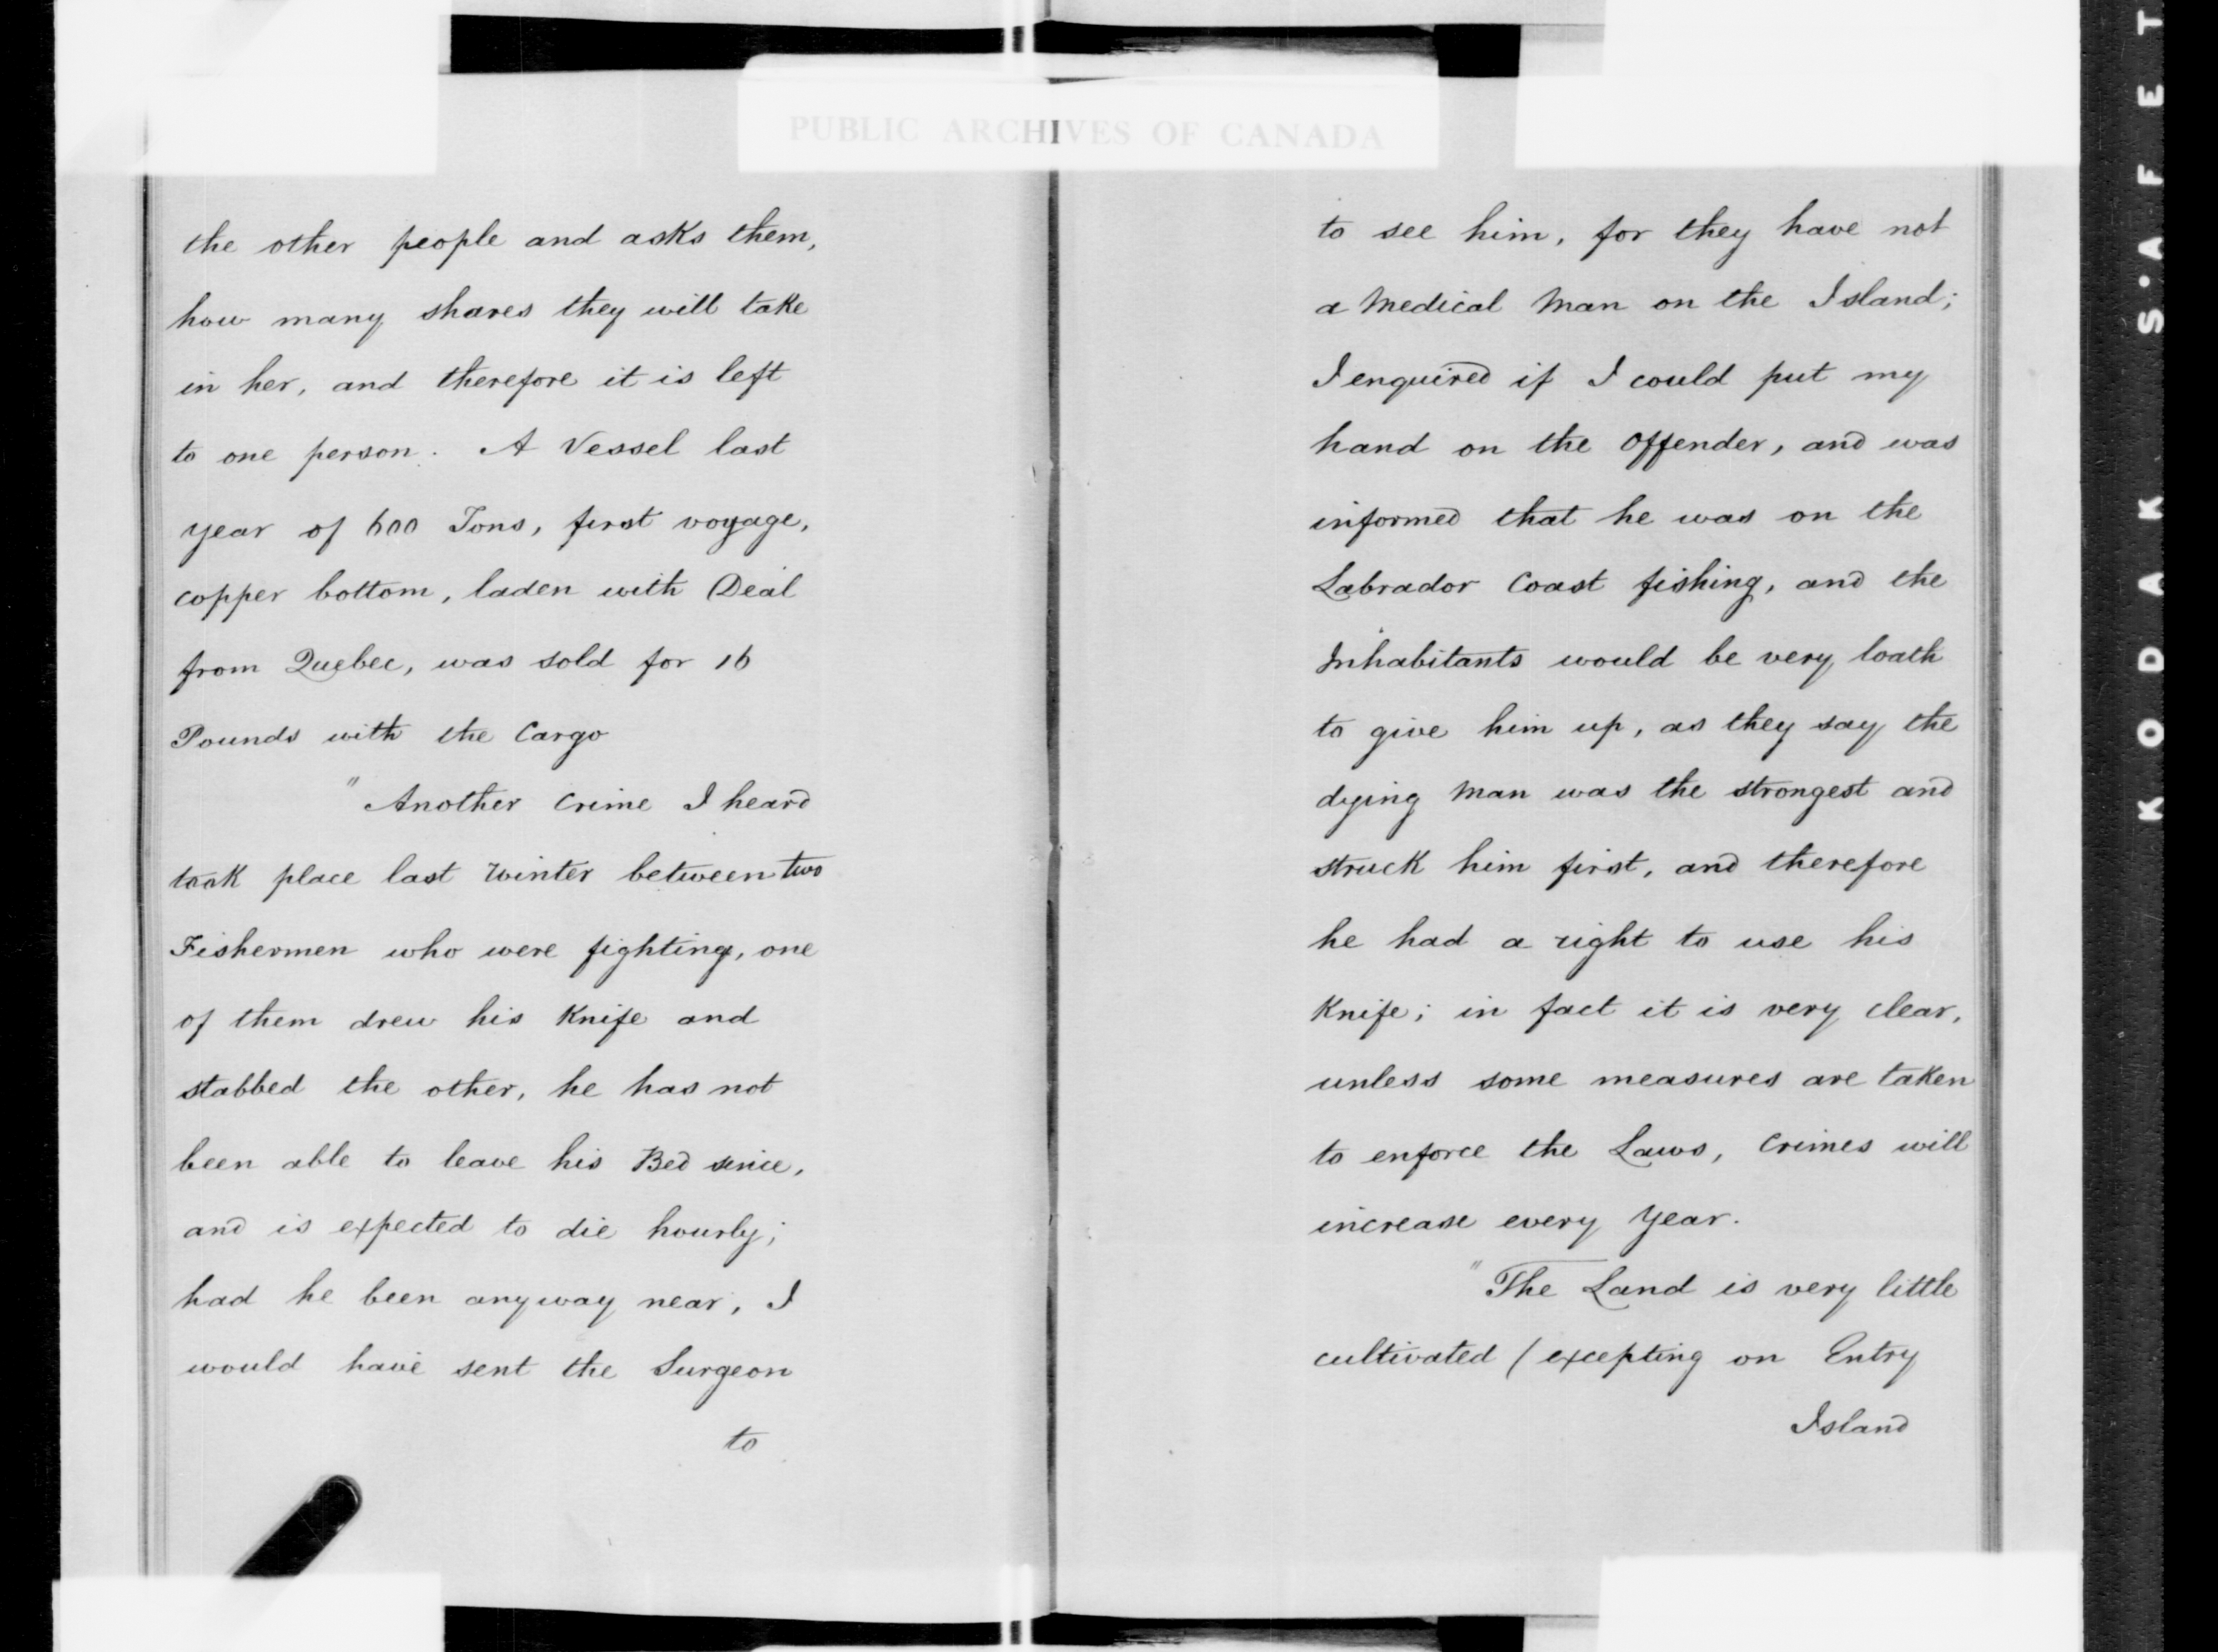 PUBLIC ARCHIVES OF CANADA
the other people and asks them,
how many shares they will take
in her, and therefore it is left
to one person. A Vessel last
year of 600 Tons, first voyage,
copper bottom, laden with Deal
from Quebec, was sold for 16
Pounds with the Cargo
"Another Crime I heard
took place last Winter between two
Fishermen who were fighting, one
of them drew his Knife and
stabbed the other, he has not
been able to leave his Bed since,
and is expected to die hourly;
had he been anyway near, I
would have sent the Surgeon
to
to see him, for they have not
a Medical Man on the Island;
I enquired if I could put my
hand on the Offender, and was
informed that he was on the
Labrador Coast fishing, and the
Inhabitants would be very loath
to give him up, as they say the
dying Man was the strongest and
struck him first, and therefore
he had a right to use his
Knife; in fact it is very clear,
unless some measures are taken
to enforce the Laws, Crimes will
increase every Year.
"The Land is very little
cultivated (excepting on Entry
Island
KODAK S'AFET